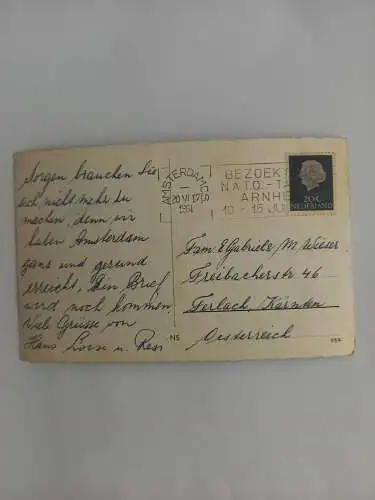 Sorgen brauchen Sie
sich nicht mehr zu
machen, denn wir
haben Amsterdam
ganz und gesund
erreicht. Ein Brief
wird noch kommen.
Viele Grüsse von
Hans Loise u. Resi
AMSTERDAM
20 VI 17
1961
BEZOEKT
NATO-TA
ARNHE
10-15 JU
20C
NEDERLAND
Fam. E. Gabriele/M. Wieser
Freibacherstr. 46
Ferlach, Kärnten
Oesterreich
NS